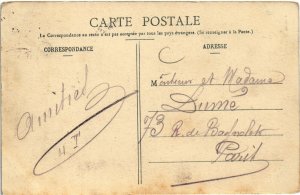 CARTE POSTALE
La Correspondance au recto n'est pas acceptée par tous les pays étrangers. (Se renseigner à la Poste.)
CORRESPONDANCE
ADRESSE
Amitiés
Monsieur et Madame
Dumé
73 R. de Bagnolet
Paris